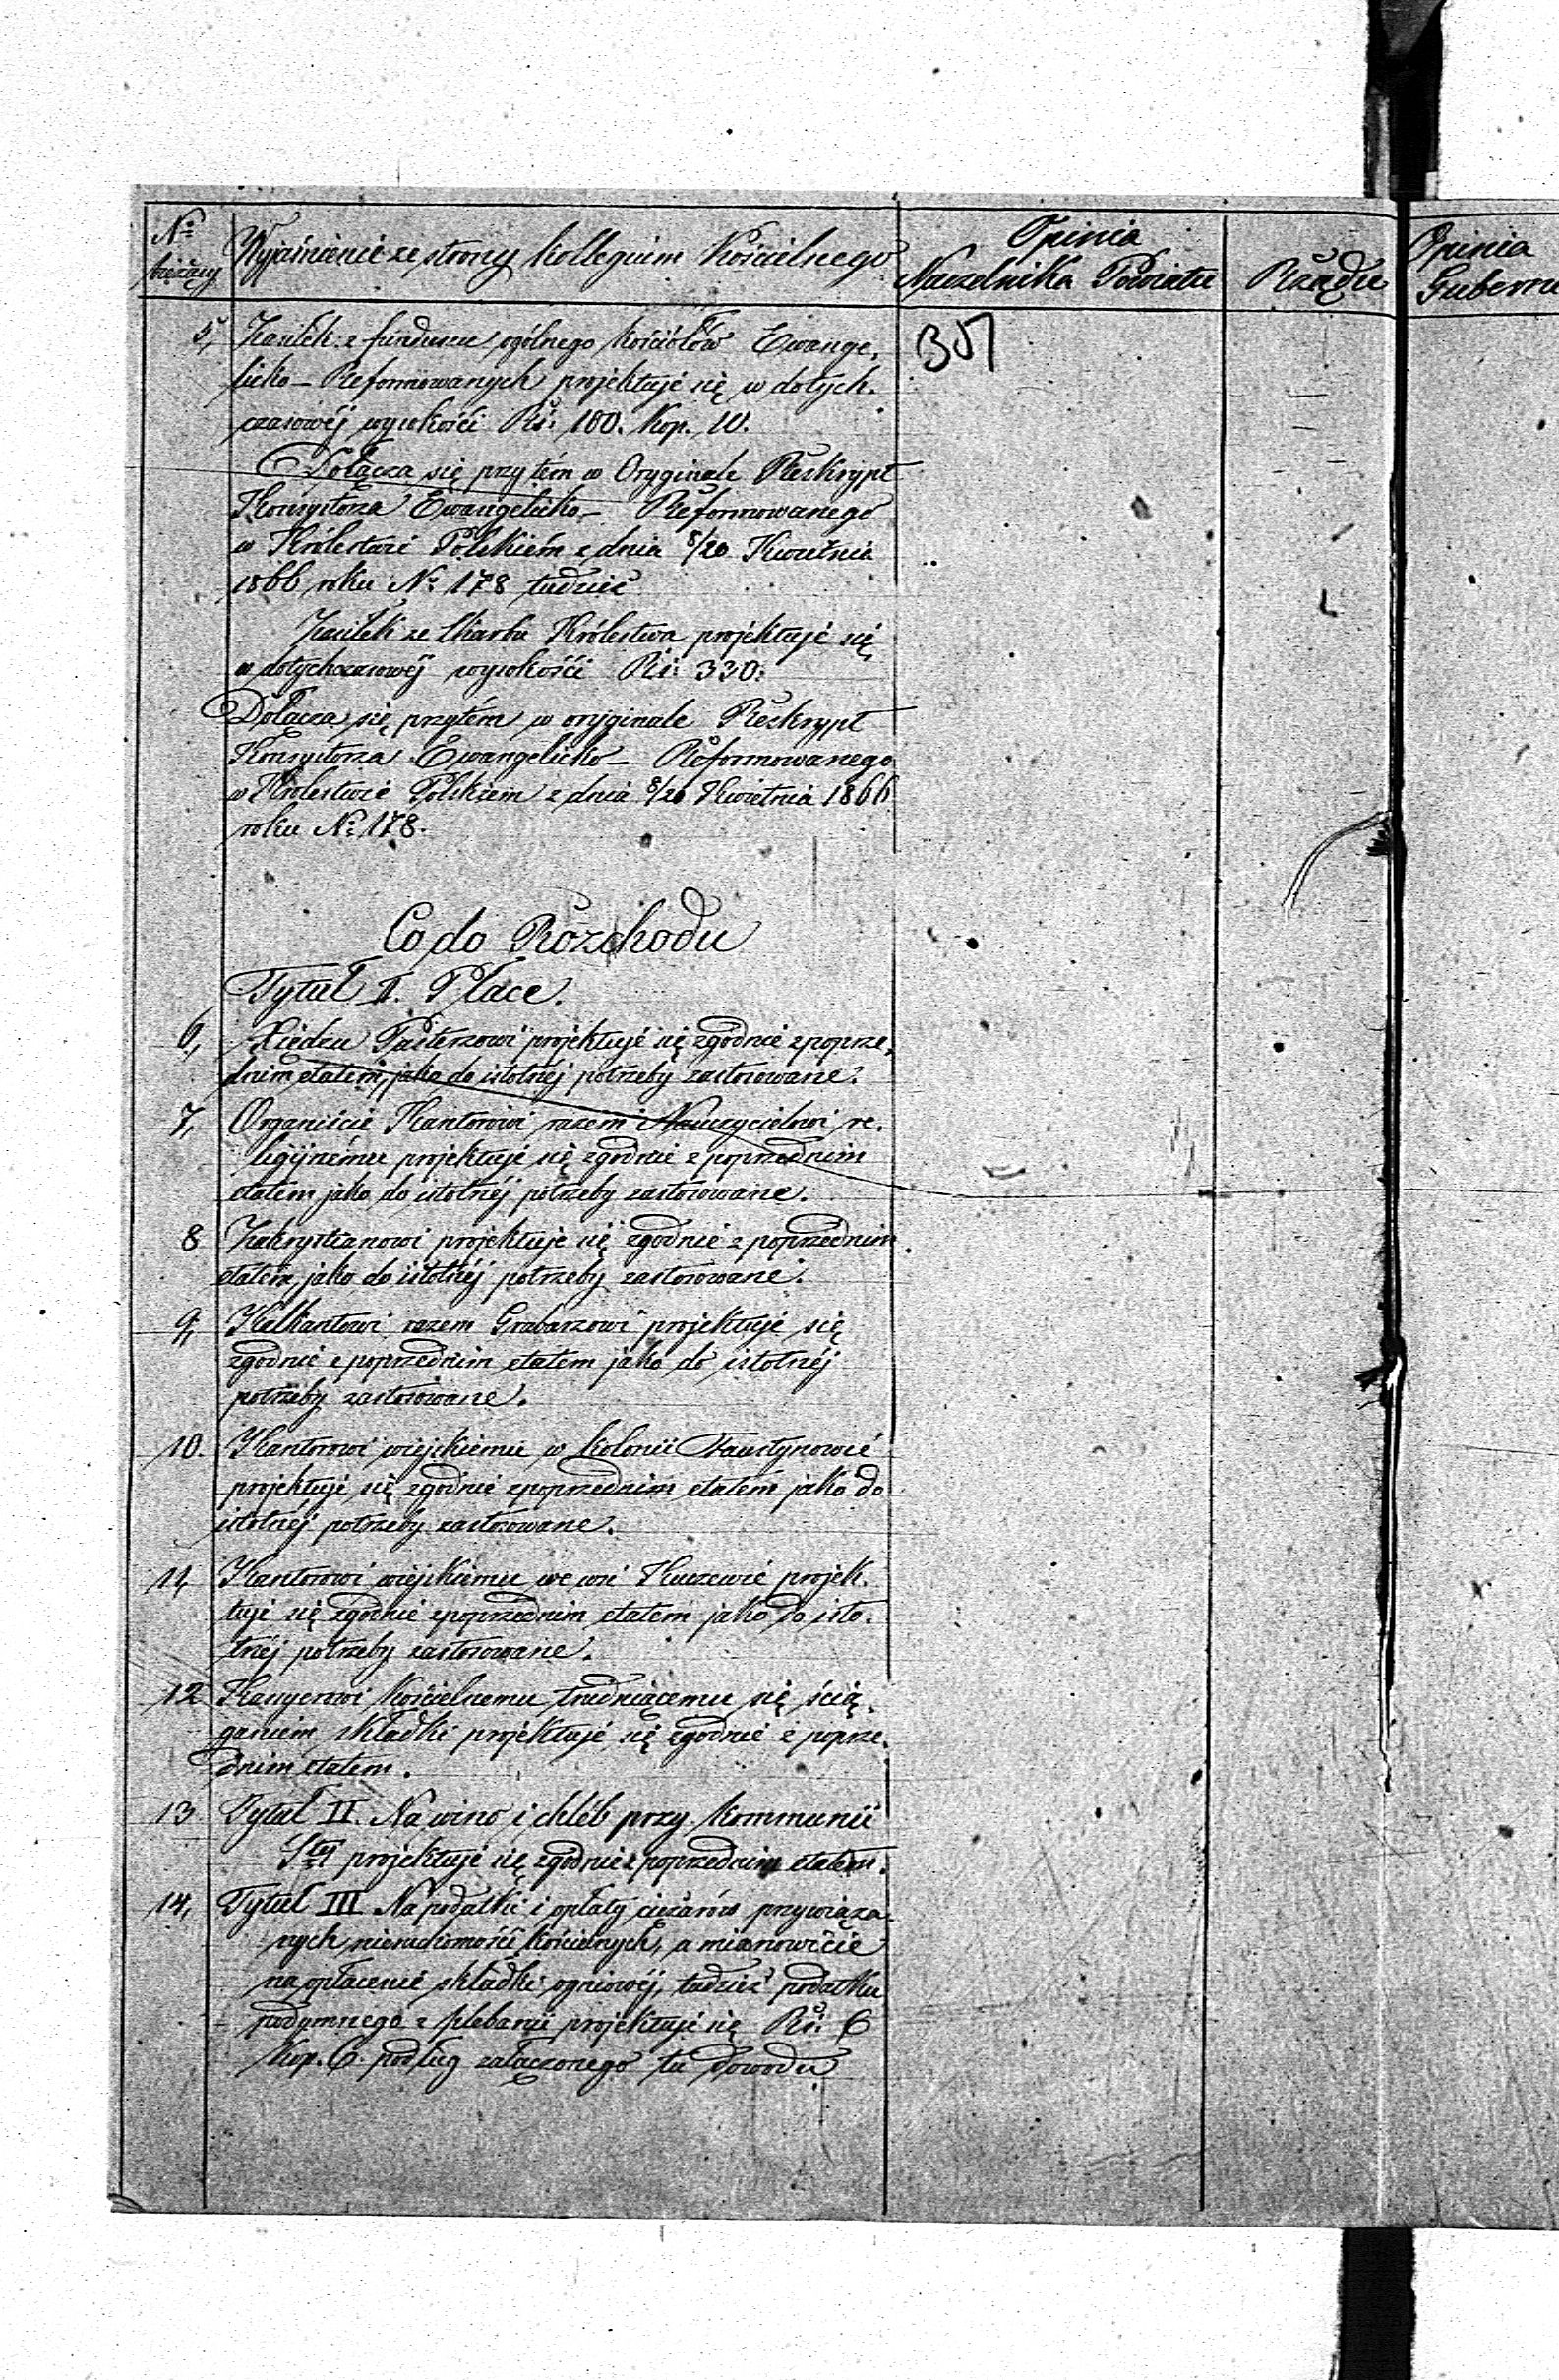 № bieżący
Wyjaśnienie ze strony Kollegium Kościelnego
Opinia
Naczelnika Powiatu
Rządu
Opinia
Guberni
5, Zasiłek z funduszu ogólnego Kościołów Ewange-
licko-Reformowanych projektuje się w dotych-
czasowéj wysokości Rs: 100. Kop. 10.
307
Dołącza się przytém w Oryginale Reskrypt
Konsystorza Ewangelicko-Reformowanego
w Królestwie Polskiém z dnia 8/20 Kwietnia
1866 roku № 178 tudzież
Zasiłek ze Skarbu Królestwa projektuje się
w dotychczasowéj wysokości Rs: 330:
Dołącza się przytém w oryginale Reskrypt
Konsystorza Ewangelicko-Reformowanego
w Królestwie Polskiem z dnia 8/20 Kwietnia 1866
roku № 178.
Co do Rozchodu
Tytuł I. Płace.
6, Xiędzu Pasterzowi projektuje się zgodnie z poprze-
dnim etatem, jako do istotnéj potrzeby zastosowane.
7, Organiście Kantorowi razem Nauczycielowi re-
ligijnému projektuje się zgodnie z poprzednim
etatem jako do istotnéj potrzeby zastosowane.
8 Zakrystianowi projektuje się zgodnie z poprzednim
etatem, jako do istotnéj potrzeby zastosowane.
9, Kalkantowi razem Grabarzowi projektuje się
zgodnie z poprzednim etatem jako do istotnéj
potrzeby zastosowane.
10. Kantorowi wiejskiemu w Kolonii Faustynowie
projektuje się zgodnie z poprzednim etatem jako do
istotnéj potrzeby zastosowane.
11, Kantorowi wiejskiemu we wsi Kuczewie projek-
tuje się zgodnie z poprzednim etatem jako do isto-
tnéj potrzeby zastosowane.
12 Kassyerowi Kościelnemu trudniącemu się ścią-
ganiem składki projektuje się zgodnie z poprze-
dnim etatem.
13 Tytuł II. Na wino i chléb przy Kommunii
Stéj projektuje się zgodnie z poprzednim etatem.
14, Tytuł III Na podatki i opłaty ciężarów przywiąza-
nych nieruchomości kościelnych, a mianowicie
na opłacenie składki ogniowéj, tudzież podatku
podymnego z plebanii projektuje się Rs: 6
Kop. 6. podług załączonego tu dowodu